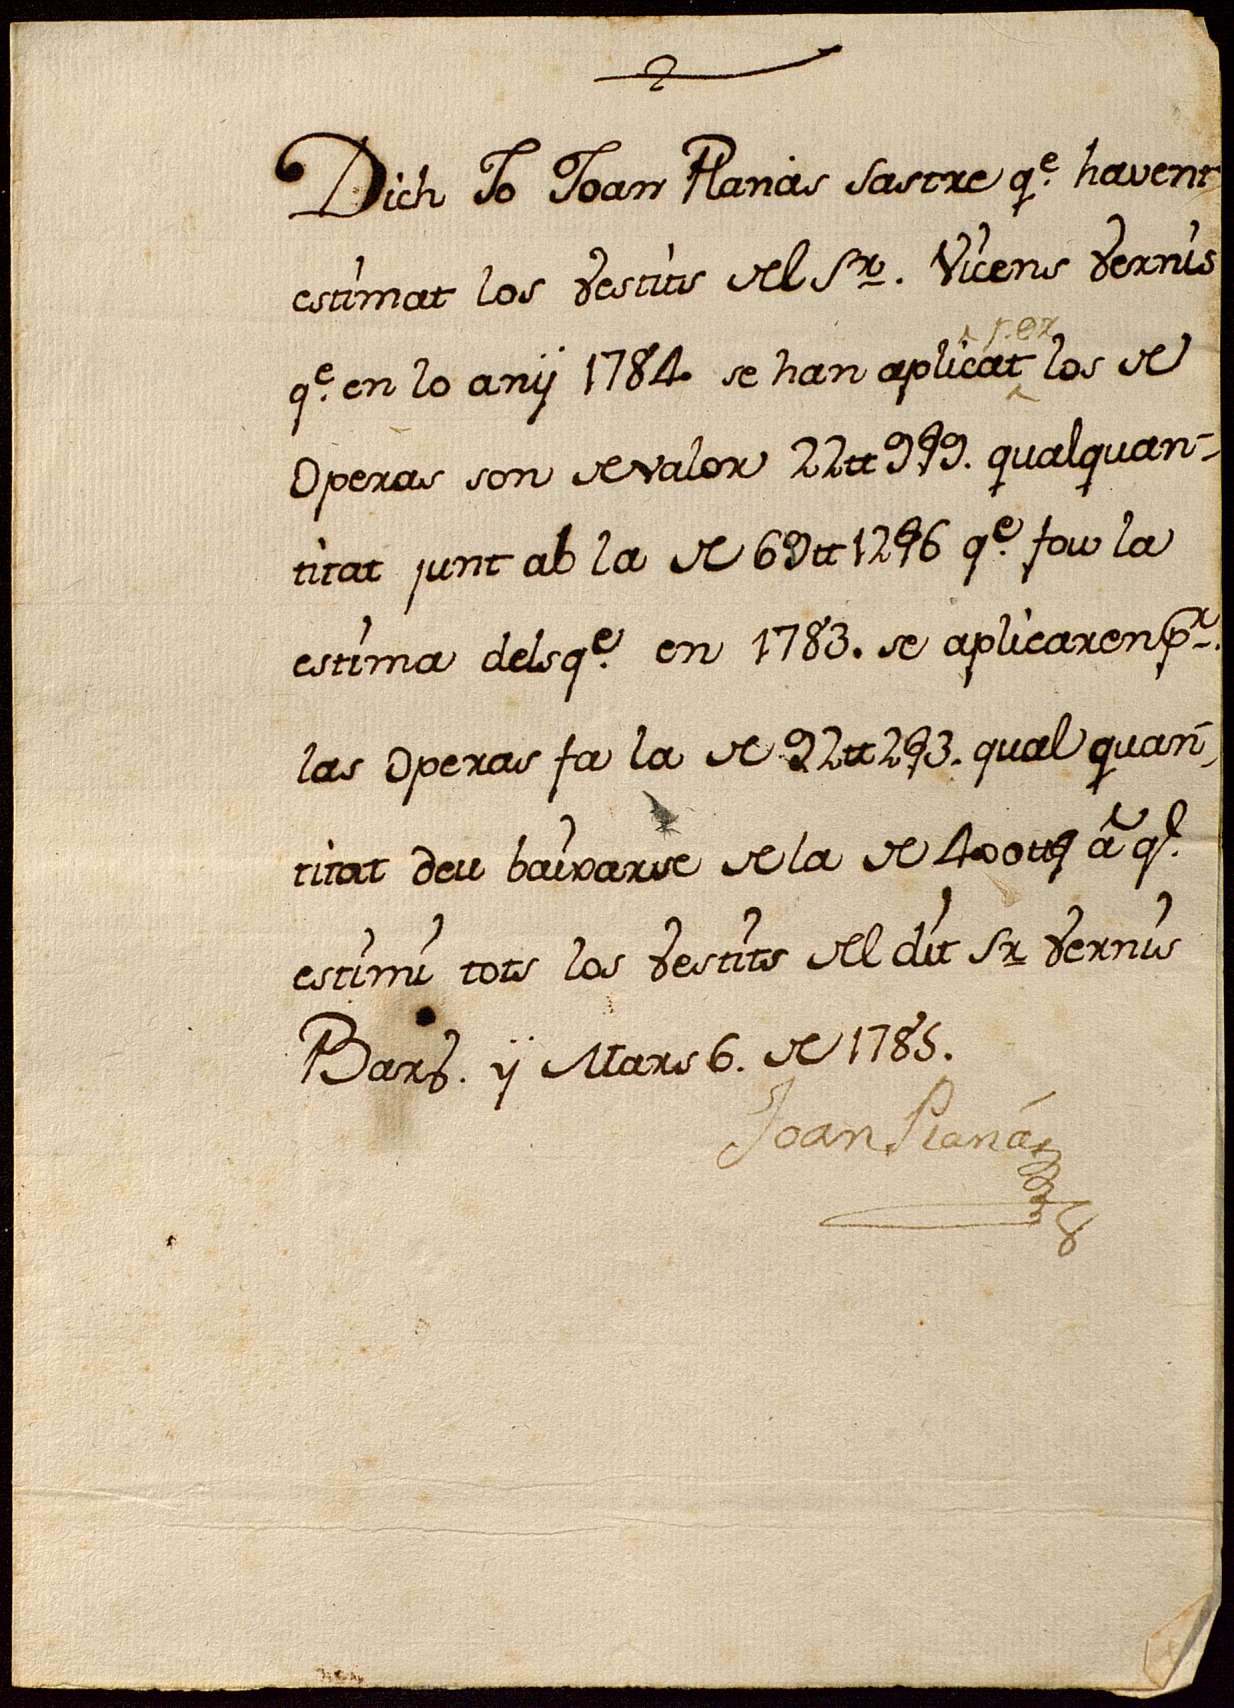 Dich Jo Joan Planas sastre q.e havent
estimat los vestits del S.r Vicens Vernis
q.e en lo any 1784. se han aplicat per los de
Operas son de valor 22tt 9ẜ9. qual quan-
titat junt ab la de 69tt 12ẜ6 q.e fou la
estima dels q.e en 1783. se aplicaren p.r
las Operas fa la de 92tt 2ẜ3. qual quan-
titat deu baixarse de la de 400ttẜ â q.l
estimí tots los vestits del dit Sr Vernis
Barñ. y Mars 6. de 1785.
Joan Planás